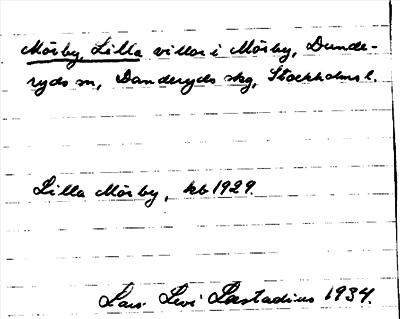 Mörby, Lilla villor i Mörby, Dande-
ryds sn, Danderyds skg, Stockholms l.
Lilla Mörby, kb 1929.
Lars Levi Læstadius 1934.